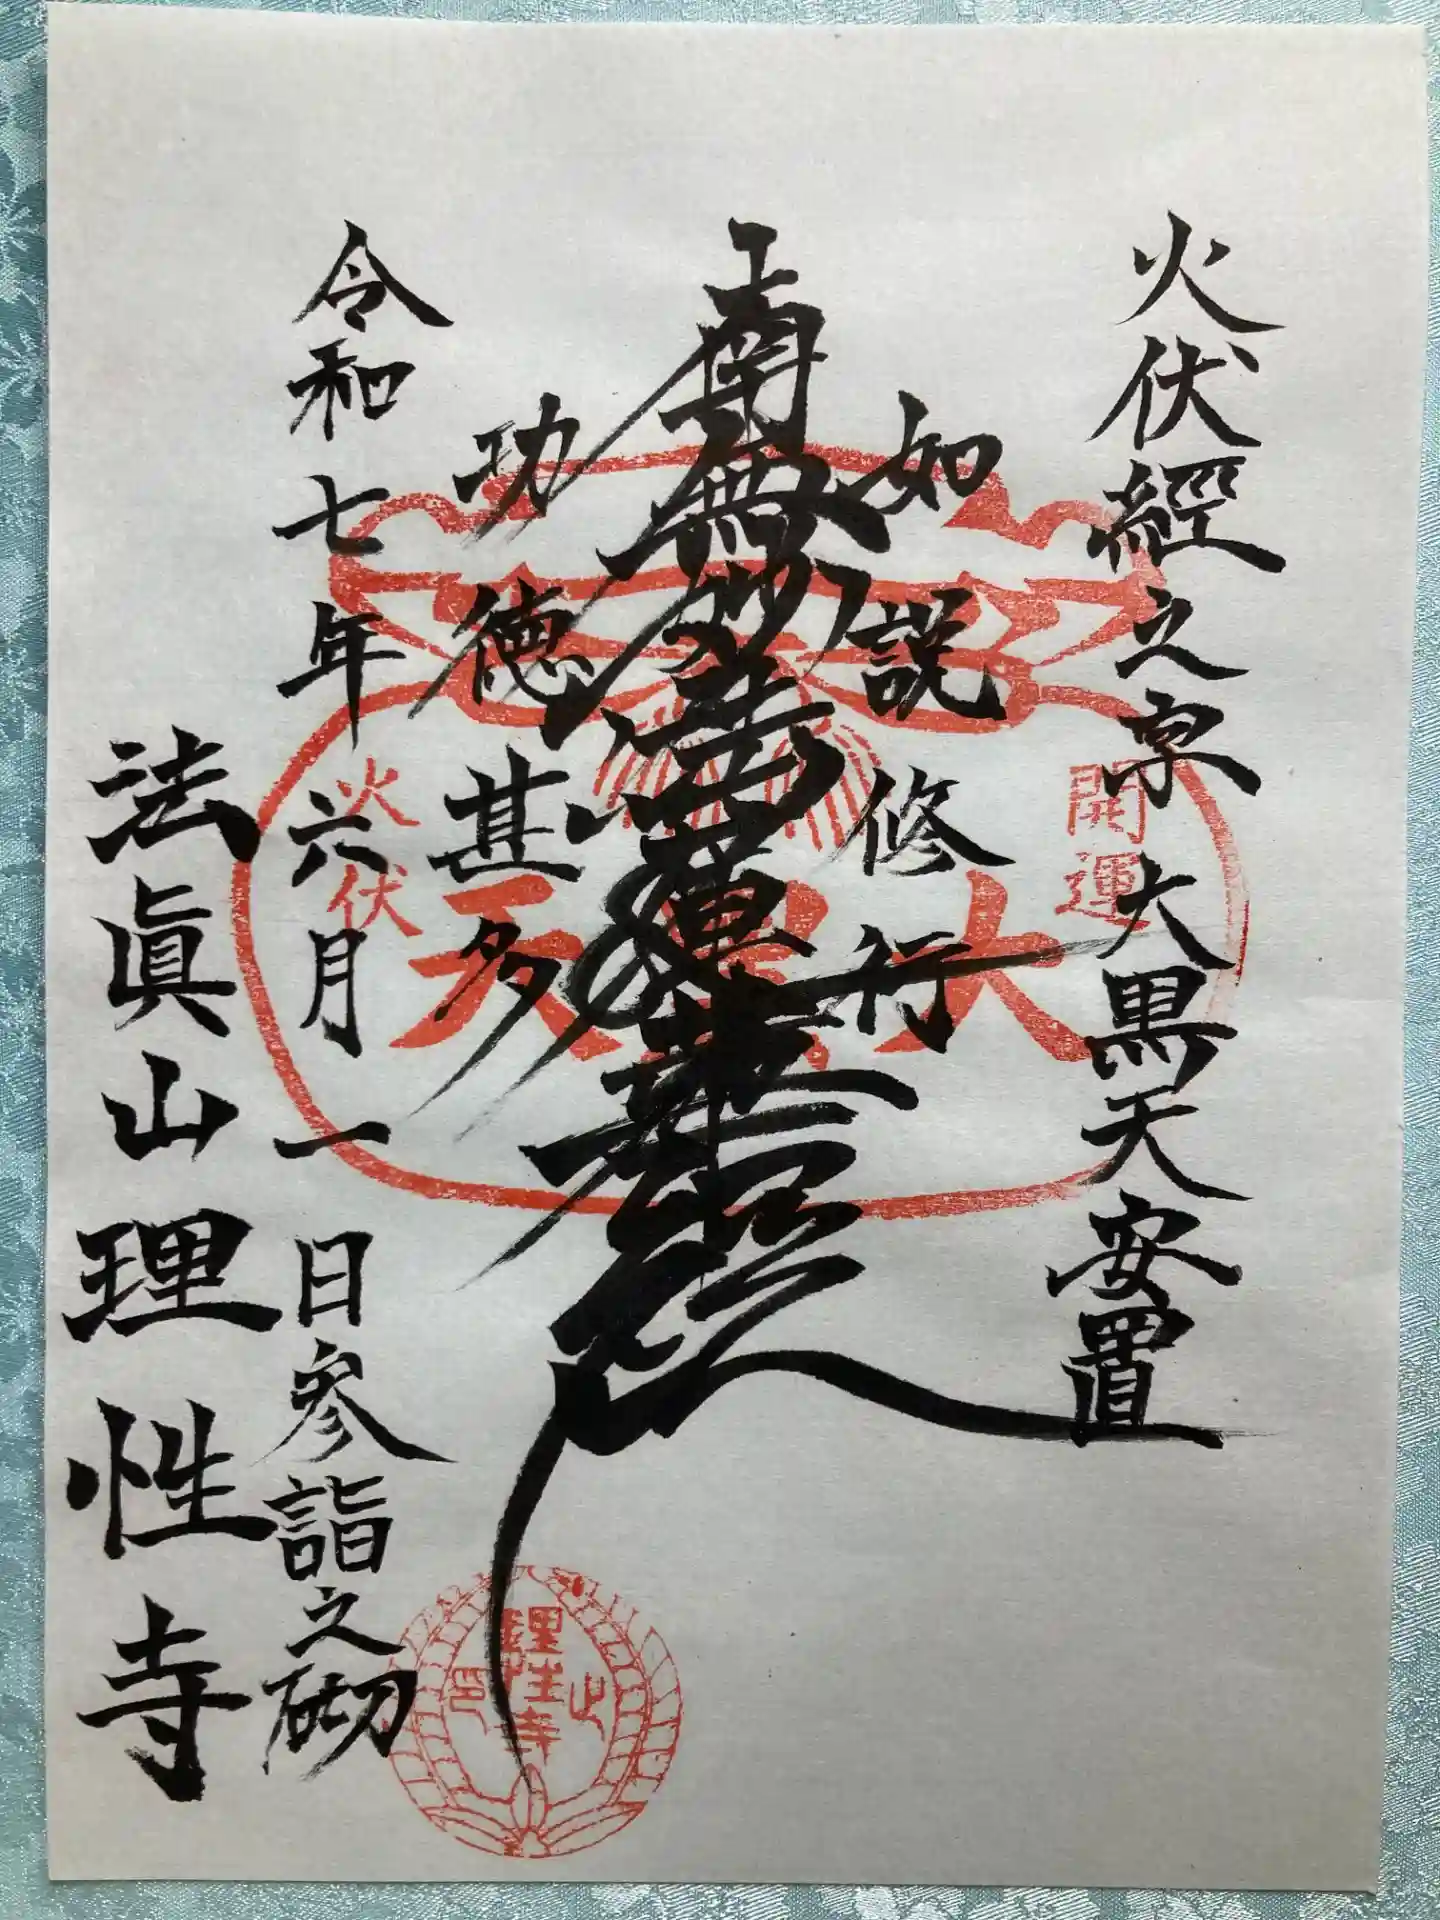 火伏經之宗 大黒天安置
如説修行
南無妙法蓮華経
功徳甚多
令和七年六月一日参詣之砌
法眞山理性寺
開運
大黒天
火伏
理性寺